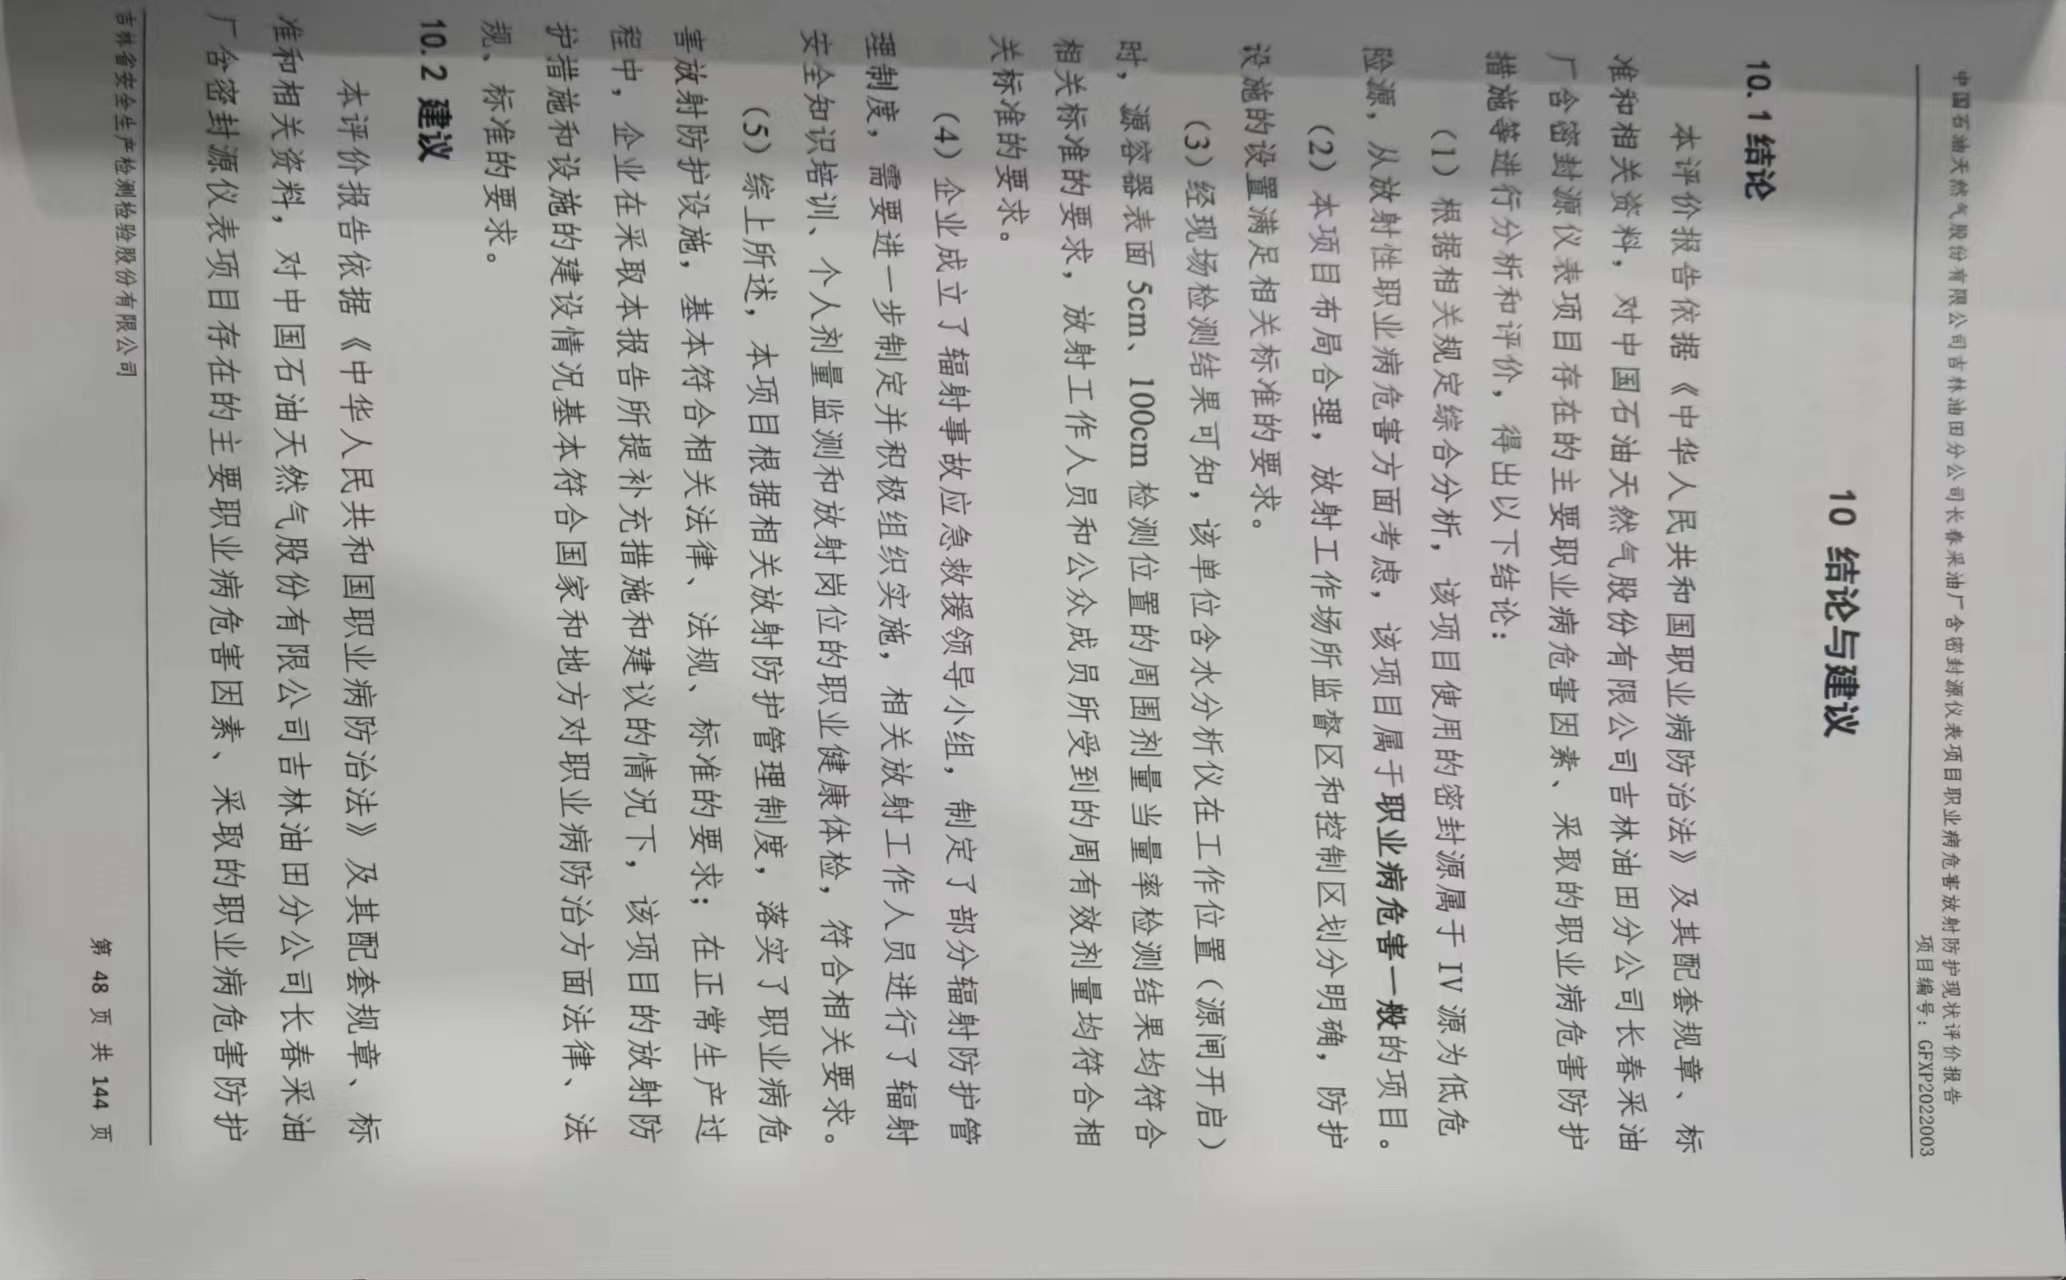 中国石油天然气股份有限公司吉林油田分公司长春采油厂含密封源仪表项目职业病危害放射防护现状评价报告
项目编号：GFXP2022003
10 结论与建议
10.1 结论
本评价报告依据《中华人民共和国职业病防治法》及其配套规章、标
准和相关资料，对中国石油天然气股份有限公司吉林油田分公司长春采油
厂含密封源仪表项目存在的主要职业病危害因素、采取的职业病危害防护
措施等进行分析和评价，得出以下结论：
（1）根据相关规定综合分析，该项目使用的密封源属于 IV 源为低危
险源，从放射性职业病危害方面考虑，该项目属于职业病危害一般的项目。
（2）本项目布局合理，放射工作场所监督区和控制区划分明确，防护
设施的设置满足相关标准的要求。
（3）经现场检测结果可知，该单位含水分析仪在工作位置（源闸开启）
时，源容器表面 5cm、100cm 检测位置的周围剂量当量率检测结果均符合
相关标准的要求，放射工作人员和公众成员所受到的周有效剂量均符合相
关标准的要求。
（4）企业成立了辐射事故应急救援领导小组，制定了部分辐射防护管
理制度，需要进一步制定并积极组织实施，相关放射工作人员进行了辐射
安全知识培训、个人剂量监测和放射岗位的职业健康体检，符合相关要求。
（5）综上所述，本项目根据相关放射防护管理制度，落实了职业病危
害放射防护设施，基本符合相关法律、法规、标准的要求；在正常生产过
程中，企业在采取本报告所提补充措施和建议的情况下，该项目的放射防
护措施和设施的建设情况基本符合国家和地方对职业病防治方面法律、法
规、标准的要求。
10.2 建议
本评价报告依据《中华人民共和国职业病防治法》及其配套规章、标
准和相关资料，对中国石油天然气股份有限公司吉林油田分公司长春采油
厂含密封源仪表项目存在的主要职业病危害因素、采取的职业病危害防护
吉林省安全生产检测检验股份有限公司
第 48 页 共 144 页